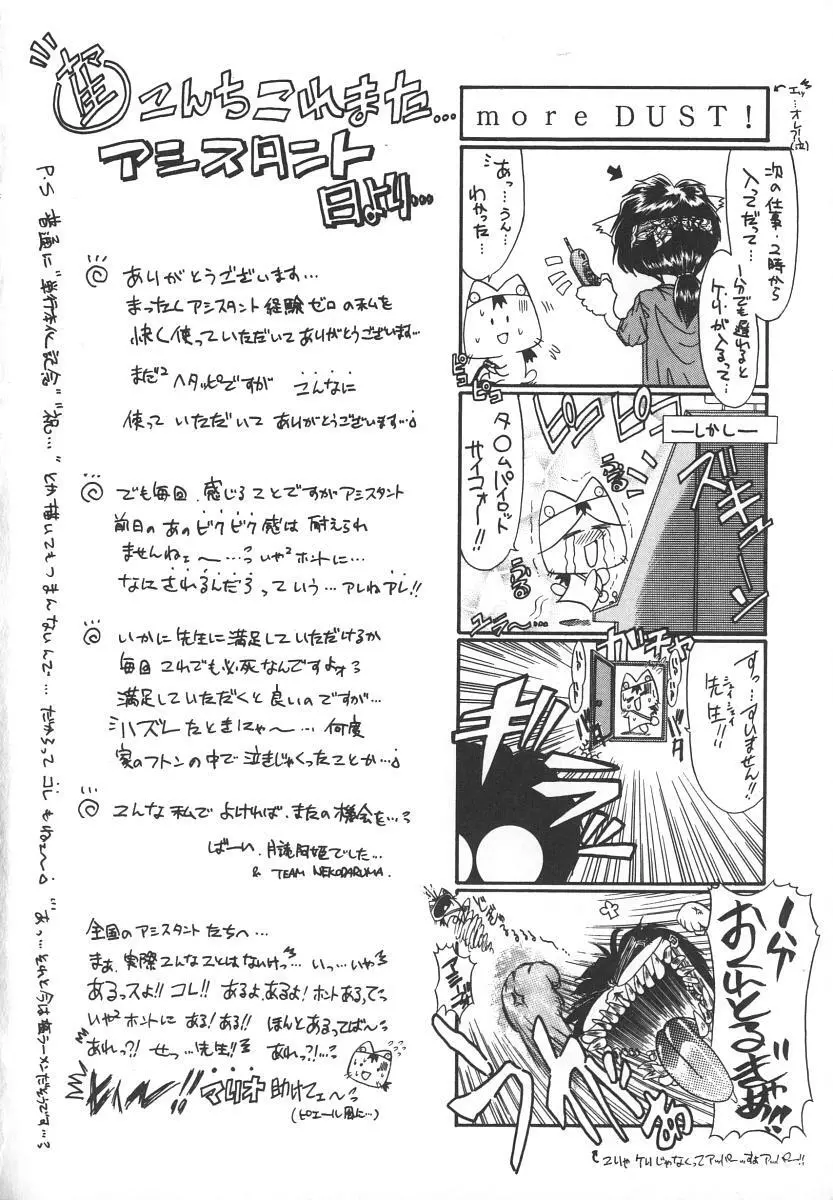 こんちこれまた…
アシスタント
日より…
ありがとうございます…
まったくアシスタント経験ゼロの私を
快く使っていただいてありがとうございます…
まだ²ヘタッピですが こんなに
使って いただいて ありがとうございます…♪
でも毎回、感じることですがアシスタント
前日のあのビクビク感は耐えられ
ませんねェ〜…っいや²ホントに…
なにされるんだろっていう…アレねアレ!!
いかに先生に満足していただけるか
毎回これでも必死なんですよォっ
満足していただくと良いのですが…
ハズしたときにゃ〜…何度
家のフトンの中で泣きじゃくったことか…
こんな私でよければ、またの機会を…っ
ばーい、
& TEAM NEKODARUMA.
全国のアシスタントたちへ…
まぁ、実際こんなことはないけっ…いっ…いや
あるっスよ!! コレ!! あるよ、あるよ! ホントあるって
いや²ホントに ある! ある!! ほんとあるってば〜っ
あれっ?! せっ…先生!! あれっ?!…
助けてェ〜っ
(ピエール風に…)
P.S 普通に"単行本化記念""祝…"とか描いてもつまんないんで… だからってコレもねェ〜
more DUST!
エッ…オレ?!(泣)
次の仕事、2時から
入ってだって…
1分でも遅れると
ケリが入るって…
あっ…うん…
わかった…
ピョコピョコ
―しかし―
ピンポーン
ズギューン
タ〇ムパイロット
サイコォー!!
ふるふる
ユラ〜…
ガチャ
すっ…すいません!!
先生!!
バタ
バタ
バッ
1分
おくれとるぎゃあ!!